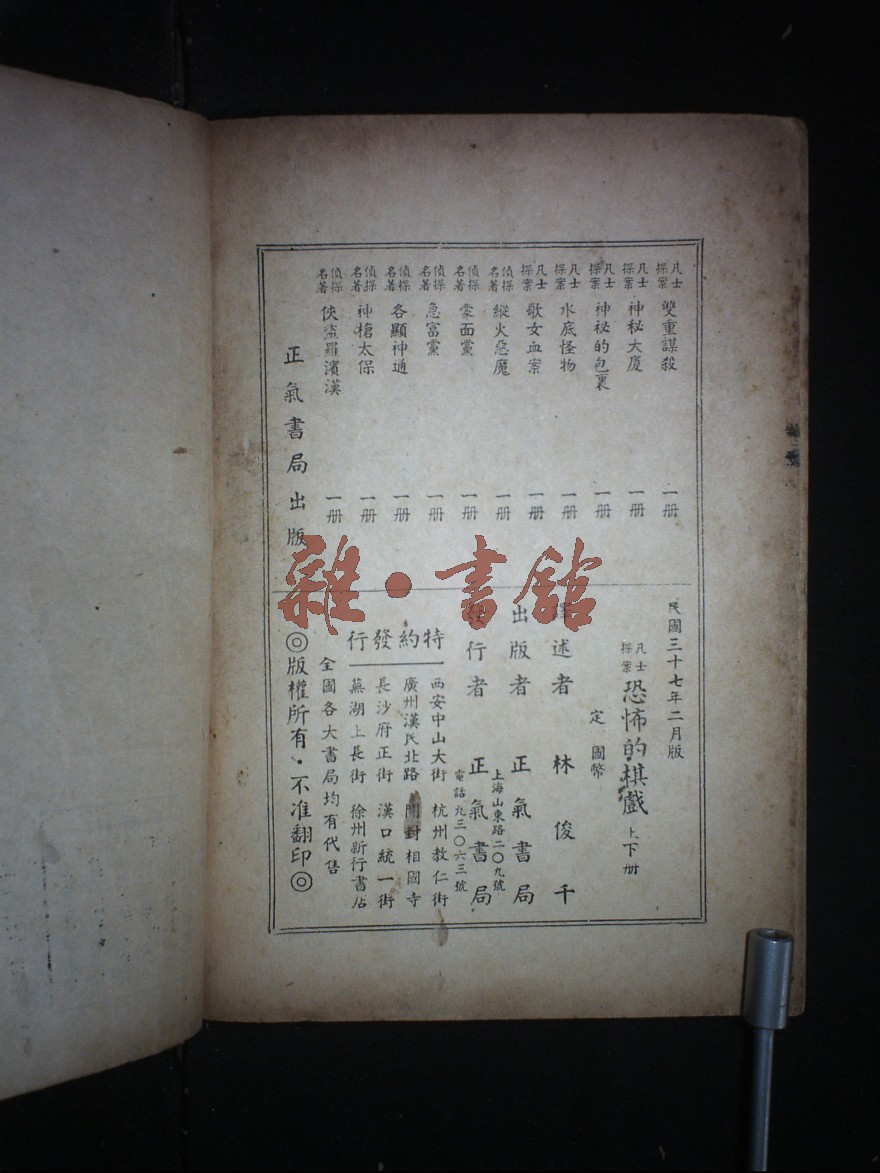 凡士探案 雙重謀殺 一册
凡士探案 神秘大廈 一册
凡士探案 神祕的包裹 一册
凡士探案 水底怪物 一册
凡士探案 歌女血案 一册
偵探名著 縱火惡魔 一册
偵探名著 蒙面黨 一册
偵探名著 急富黨 一册
偵探名著 各顯神通 一册
偵探名著 神槍太保 一册
偵探名著 俠盜羅濱漢 一册
正氣書局出版
民國三十七年二月版
凡士探案 恐怖的棋戲 上下册
定 國幣
譯述者 林俊千
出版者 正氣書局
上海山東路二〇九號
發行者 正氣書局
電話九三〇六三號
特約發行
西安中山大街 杭州教仁街
廣州漢民北路 開封相國寺
長沙府正街 漢口統一街
蕪湖上長街 徐州新行書店
全國各大書局均有代售
◎版權所有・不准翻印◎
雜・書館